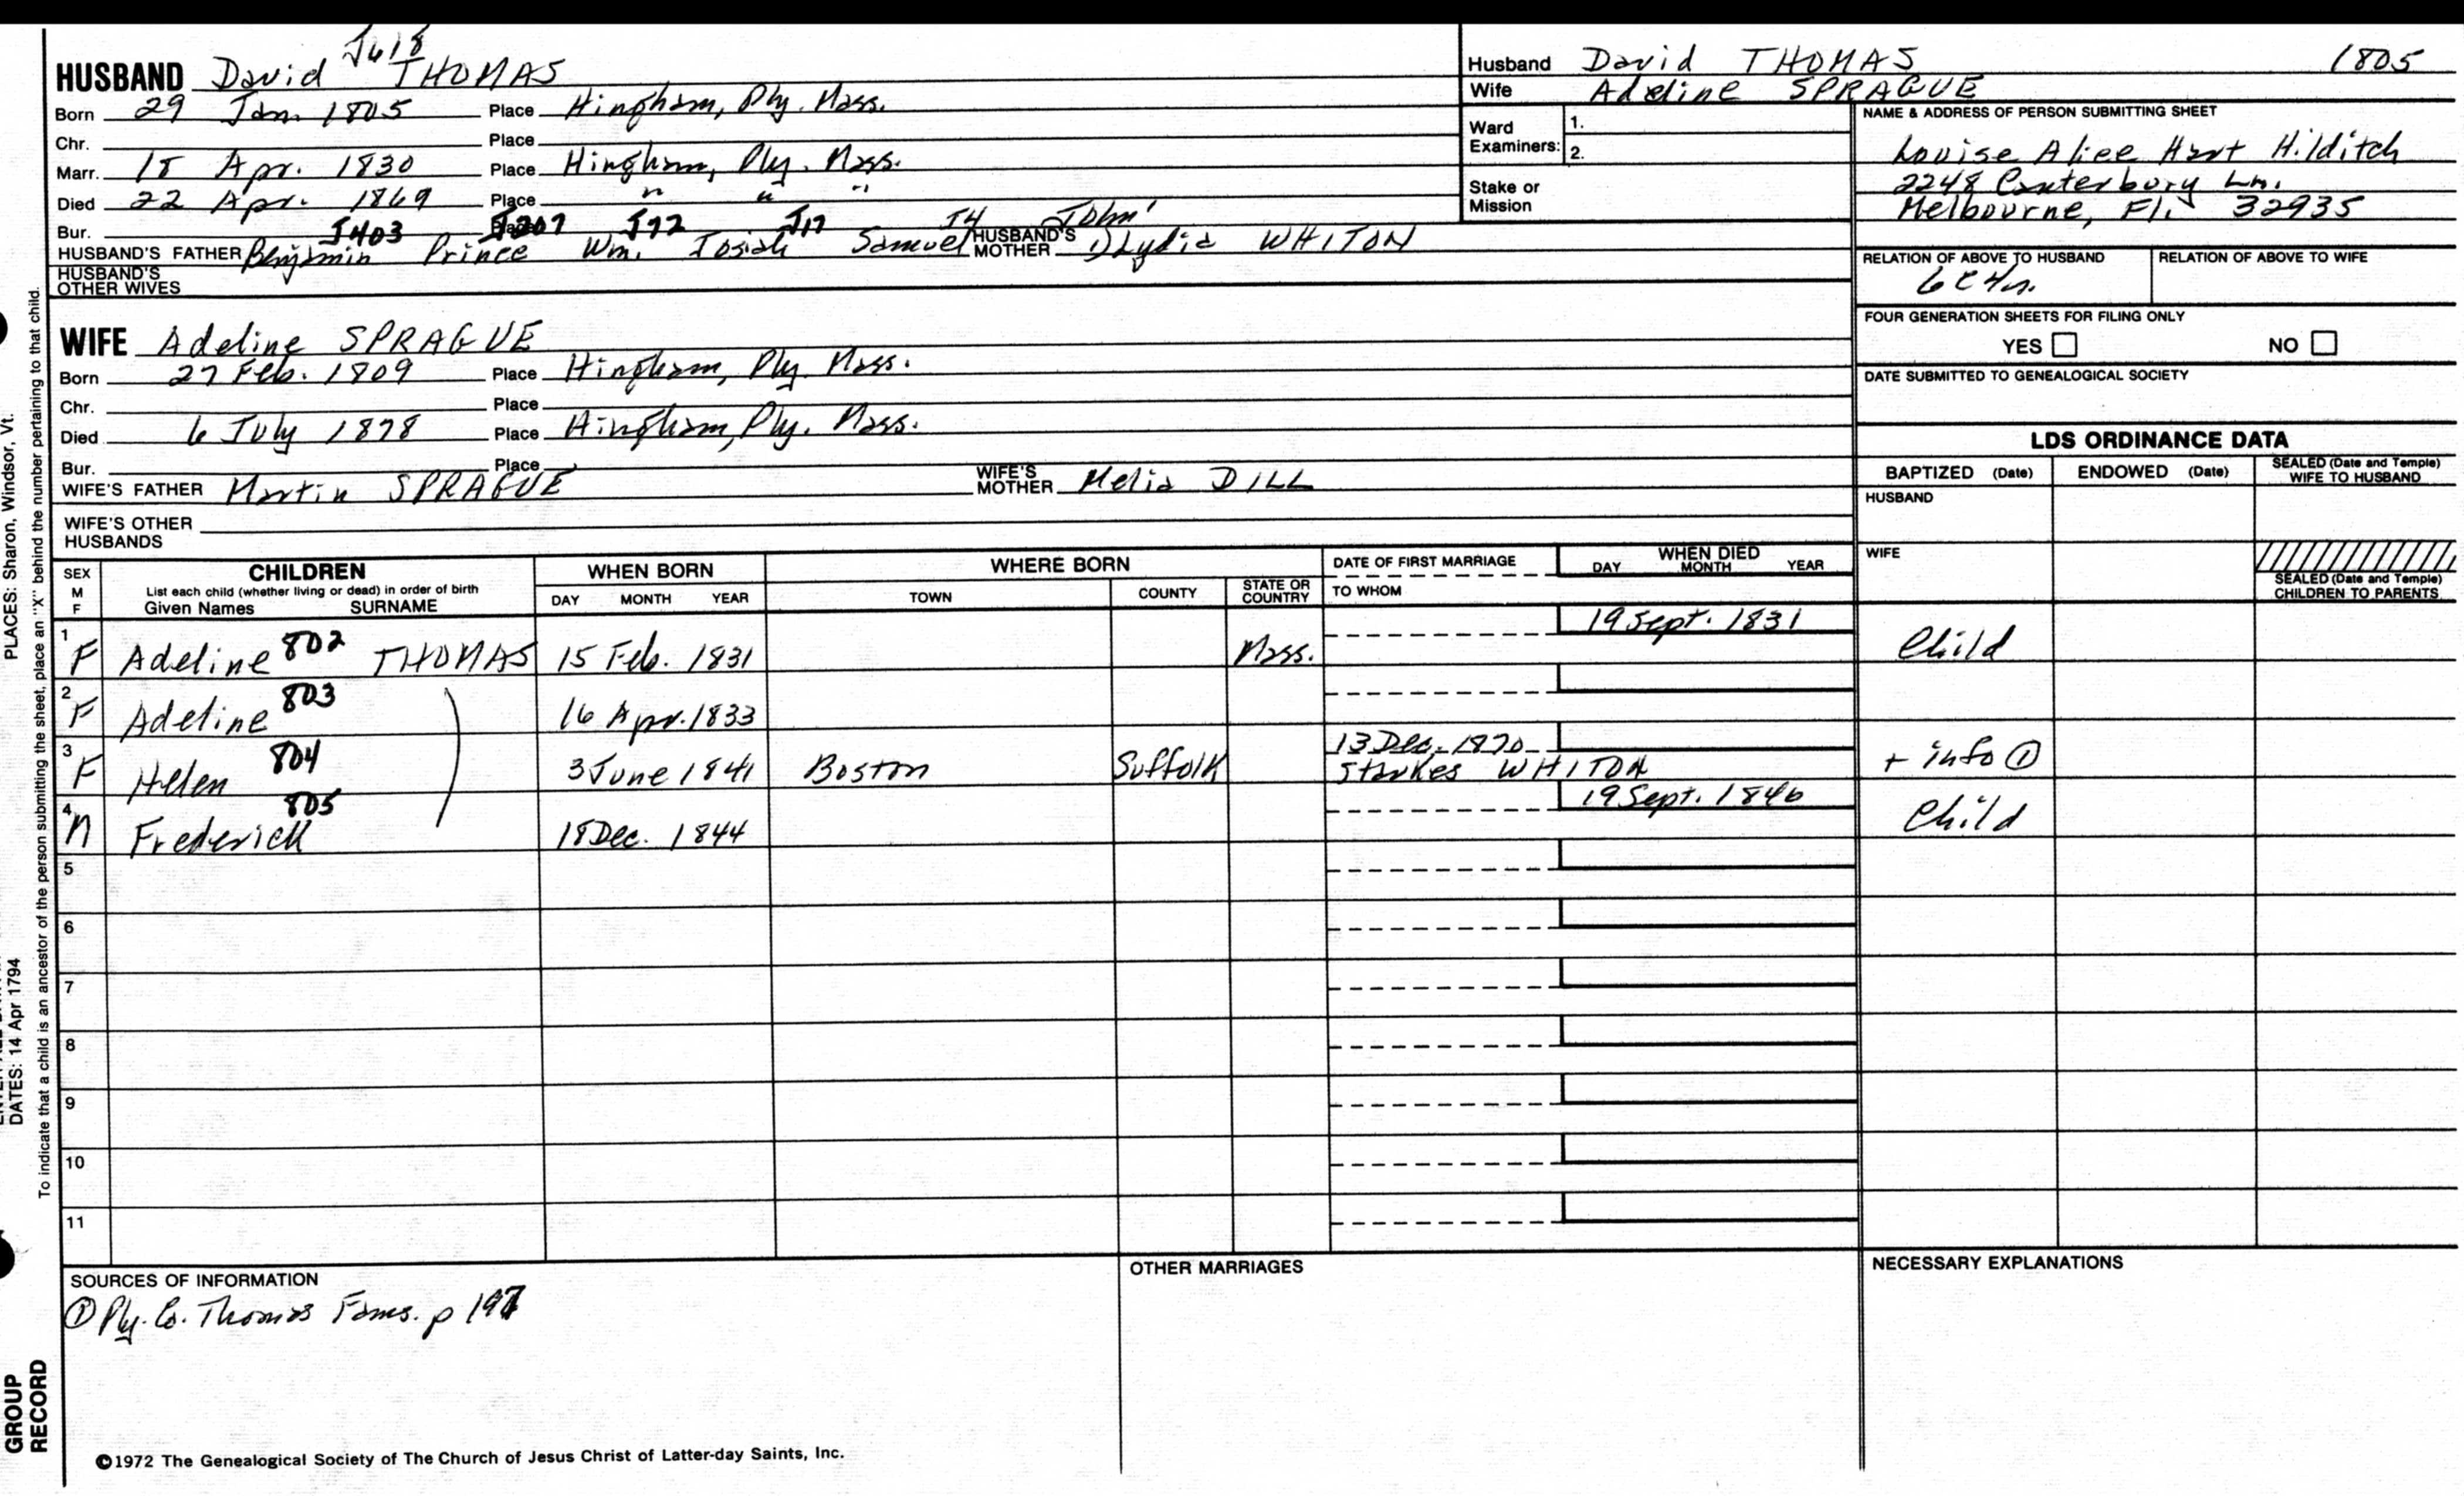 J618
HUSBAND David THOMAS
Born 29 Jan. 1805 Place Hingham, Ply. Mass.
Chr. Place
Marr. 18 Apr. 1830 Place Hingham, Ply. Mass.
Died 22 Apr. 1869 Place " " "
Bur. J403 J207 J72 J17 J4 John'
HUSBAND'S FATHER Benjamin Prince Wm. Josiah Samuel HUSBAND'S MOTHER 1) Lydia WHITON
HUSBAND'S OTHER WIVES
WIFE Adeline SPRAGUE
Born 27 Feb. 1809 Place Hingham, Ply. Mass.
Chr. Place
Died 6 July 1878 Place Hingham, Ply. Mass.
Bur. Place
WIFE'S FATHER Martin SPRAGUE WIFE'S MOTHER Melia DILL
WIFE'S OTHER HUSBANDS
Husband David THOMAS 1805
Wife Adeline SPRAGUE
Ward Examiners: 1.
2.
Stake or Mission
NAME & ADDRESS OF PERSON SUBMITTING SHEET
Louise Alice Hart Hilditch
2248 Canterbury Ln.
Melbourne, Fl. 32935
RELATION OF ABOVE TO HUSBAND RELATION OF ABOVE TO WIFE
6C4n.
FOUR GENERATION SHEETS FOR FILING ONLY
YES NO
DATE SUBMITTED TO GENEALOGICAL SOCIETY
LDS ORDINANCE DATA
BAPTIZED (Date) ENDOWED (Date) SEALED (Date and Temple) WIFE TO HUSBAND
HUSBAND
WIFE
SEALED (Date and Temple) CHILDREN TO PARENTS
SEX M F
CHILDREN
List each child (whether living or dead) in order of birth
Given Names SURNAME
WHEN BORN
DAY MONTH YEAR
WHERE BORN
TOWN COUNTY STATE OR COUNTRY
DATE OF FIRST MARRIAGE
TO WHOM
WHEN DIED
DAY MONTH YEAR
1 F Adeline 802 THOMAS 15 Feb. 1831 Mass. 19 Sept. 1831 Child
2 F Adeline 803 16 Apr. 1833
3 F Helen 804 3 June 1841 Boston Suffolk 13 Dec. 1870 Starkes WHITON + info ①
4 M Frederick 805 18 Dec. 1844 19 Sept. 1846 Child
5
6
7
8
9
10
11
SOURCES OF INFORMATION
① Ply. Co. Thomas Fams. p 197
OTHER MARRIAGES
NECESSARY EXPLANATIONS
©1972 The Genealogical Society of The Church of Jesus Christ of Latter-day Saints, Inc.
PLACES: Sharon, Windsor, Vt.
DATES: 14 Apr 1794
To indicate that a child is an ancestor of the person submitting the sheet, place an "X" behind the number pertaining to that child.
GROUP
RECORD